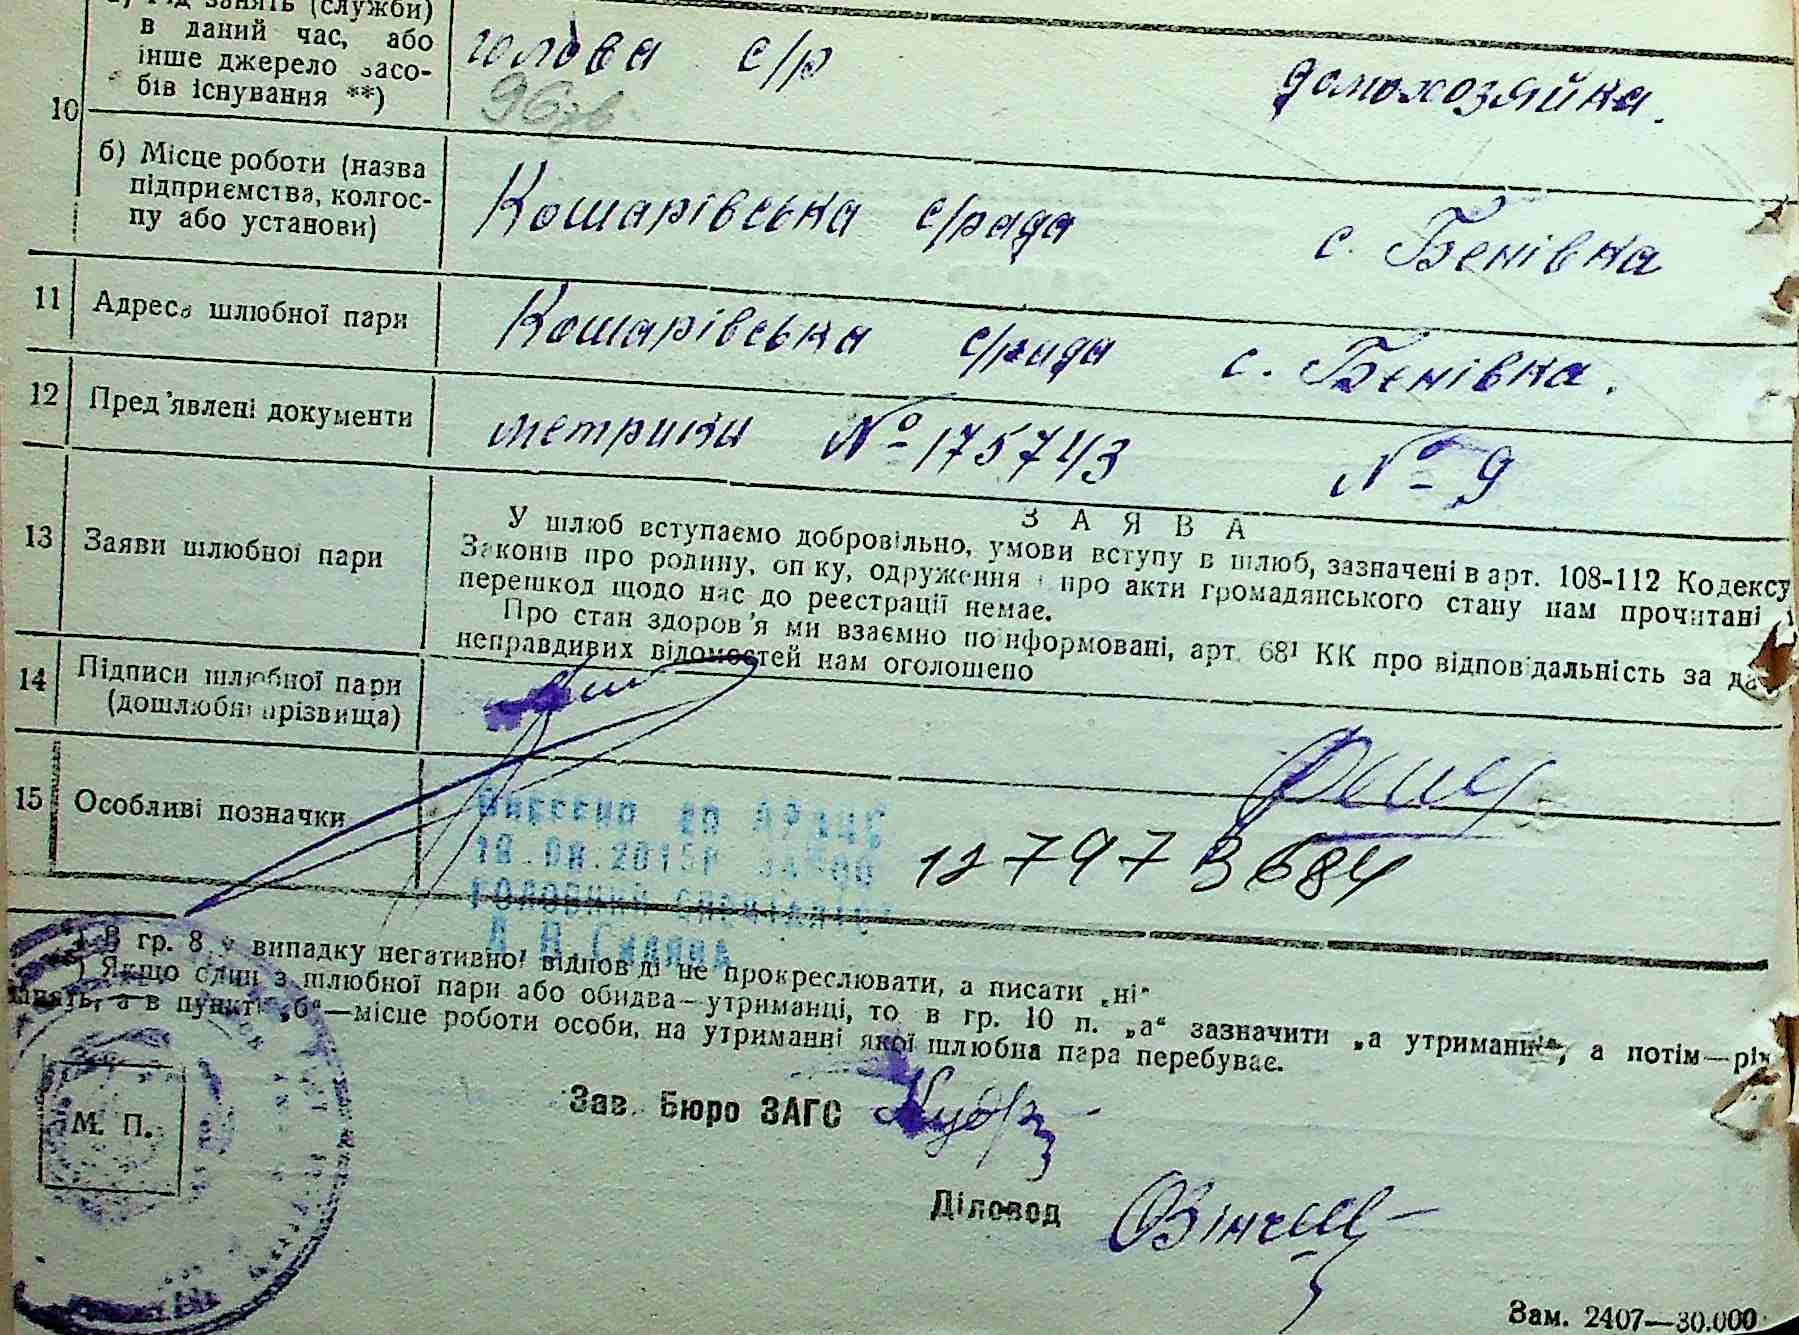 а) Рід занять (служби)
в даний час, або
інше джерело засо-
бів існування **)
голова с/р
домохозяйка.
10
б) Місце роботи (назва
підприємства, колгос-
пу або установи)
Кошарівська с/рада
с. Бенівка
11 Адреса шлюбної пари
Кошарівська с/рада с. Бенівка.
12 Пред'явлені документи
метрики № 175743 № 9
13 Заяви шлюбної пари
ЗАЯВА
У шлюб вступаємо добровільно, умови вступу в шлюб, зазначені в арт. 108-112 Кодексу
Законів про родину, опіку, одруження і про акти громадянського стану нам прочитані і
перешкод щодо нас до реєстрації немає.
Про стан здоров'я ми взаємно поінформовані, арт. 68¹ КК про відповідальність за да
неправдивих відомостей нам оголошено
14 Підписи шлюбної пари
(дошлюбні прізвища)
15 Особливі позначки
Внесено до ДРАЦС
18.08.2015р
головний спеціаліст
12797 3684
*) В гр. 8 у випадку негативної відповіді не прокреслювати, а писати „ні“
**) Якщо один з шлюбної пари або обидва—утриманці, то в гр. 10 п. „а“ зазначити „а утриманні“, а потім—рід
занять, а в пункті „б“—місце роботи особи, на утриманні якої шлюбна пара перебуває.
М. П.
Зав. Бюро ЗАГС
Діловод
Зам. 2407—30.000